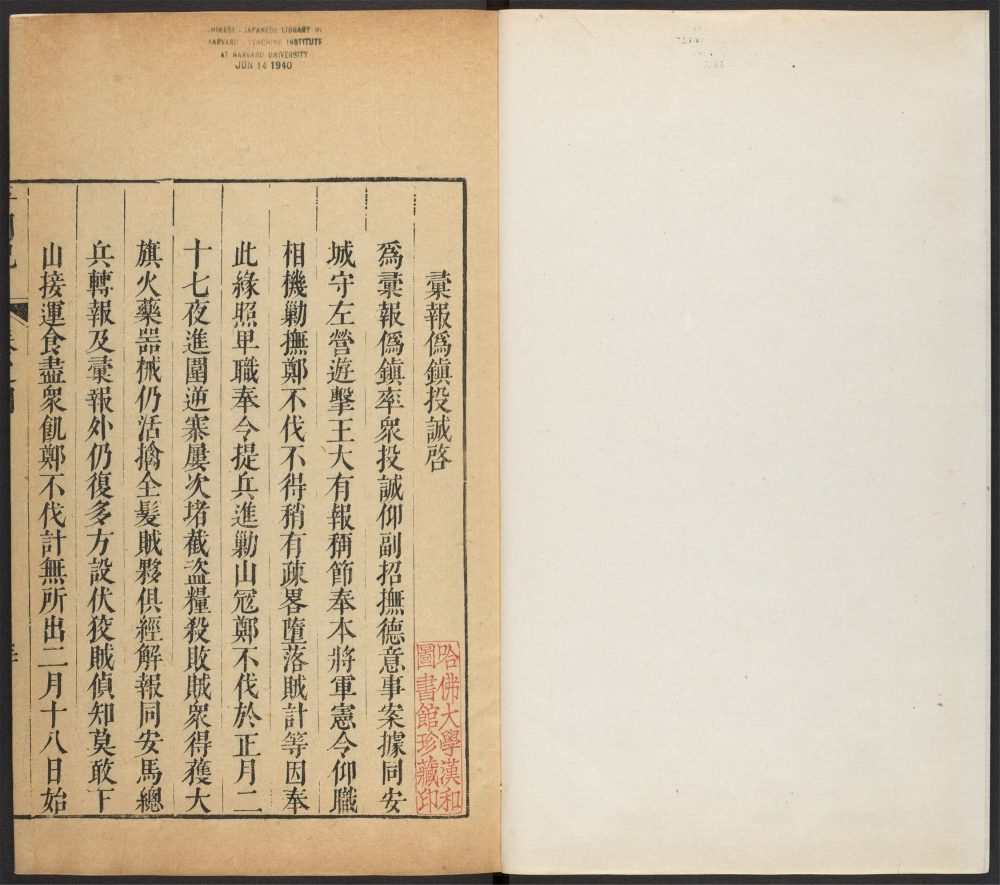 CHINESE - JAPANESE LIBRARY OF
HARVARD - YENCHING INSTITUTE
AT HARVARD UNIVERSITY
JUN 14 1940
彙報僞鎭投誠啓
爲彙報僞鎭率衆投誠仰副招撫德意事案據同安
城守左營遊擊王大有報稱節奉本將軍憲令仰職
相機勦撫鄭不伐不得稍有疎畧墮落賊計等因奉
此緣照卑職奉令提兵進勦山冦鄭不伐於正月二
十七夜進圍逆寨屢次堵截盜糧殺敗賊衆得獲大
旗火藥器械仍活擒全髮賊夥俱經解報同安馬總
兵轉報及彙報外仍復多方設伏狡賊偵知莫敢下
山接運食盡衆飢鄭不伐計無所出二月十八日始
哈佛大學漢和
圖書館珍藏印